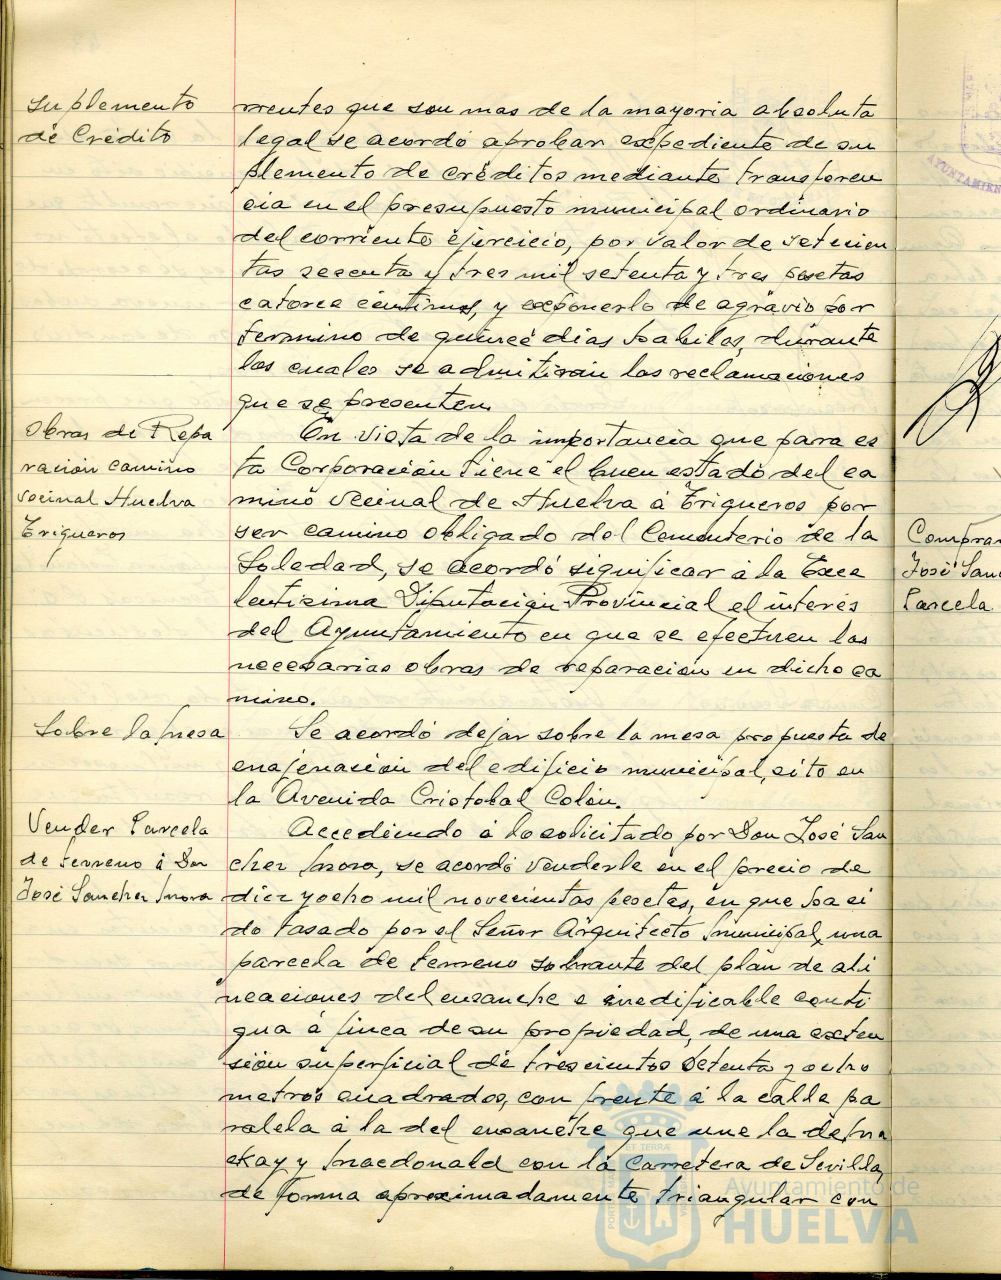 Suplemento
de Crédito
rrentes que son mas de la mayoria absoluta
legal se acordó aprobar expediente de su
plemento de créditos mediante transferen
cia en el presupuesto municipal ordinario
del corriente ejercicio, por valor de setecien
tas sesenta y tres mil setenta y tres pesetas
catorce centimos, y exponerlo de agravio por
termino de quince dias habiles, durante
los cuales se admitirán las reclamaciones
que se presenten.
Obras de Repa
ración camino
vecinal Huelva
Trigueros
En vista de la importancia que para es
ta Corporación tiene el buen estado del ca
mino vecinal de Huelva á Trigueros por
ser camino obligado del Cementerio de la
Soledad, se acordó significar á la Exce
lentisima Diputación Provincial el interés
del Ayuntamiento en que se efectuen las
necesarias obras de reparación en dicho ca
mino.
Sobre la mesa
Se acordó dejar sobre la mesa propuesta de
enajenación del edificio municipal, sito en
la Avenida Cristobal Colón.
Vender Parcela
de terreno á Don
José Sanchez Mora
Accediendo á lo solicitado por Don José San
chez Mora, se acordó venderle en el precio de
diez y ocho mil novecientas pesetas, en que ha si
do tasado por el Señor Arquitecto municipal, una
parcela de terreno sobrante del plan de ali
neaciones del ensanche e inedificable conti
gua á finca de su propiedad, de una exten
sión superficial de trescientos setenta y ocho
metros cuadrados, con frente á la calle pa
ralela á la del ensanche que une la de Ma
ckay y Macdonald con la Carretera de Sevilla,
de forma aproximadamente triangular con
Comprar
José San
Parcela
AYUNTAMIEN
Ayuntamiento de
HUELVA